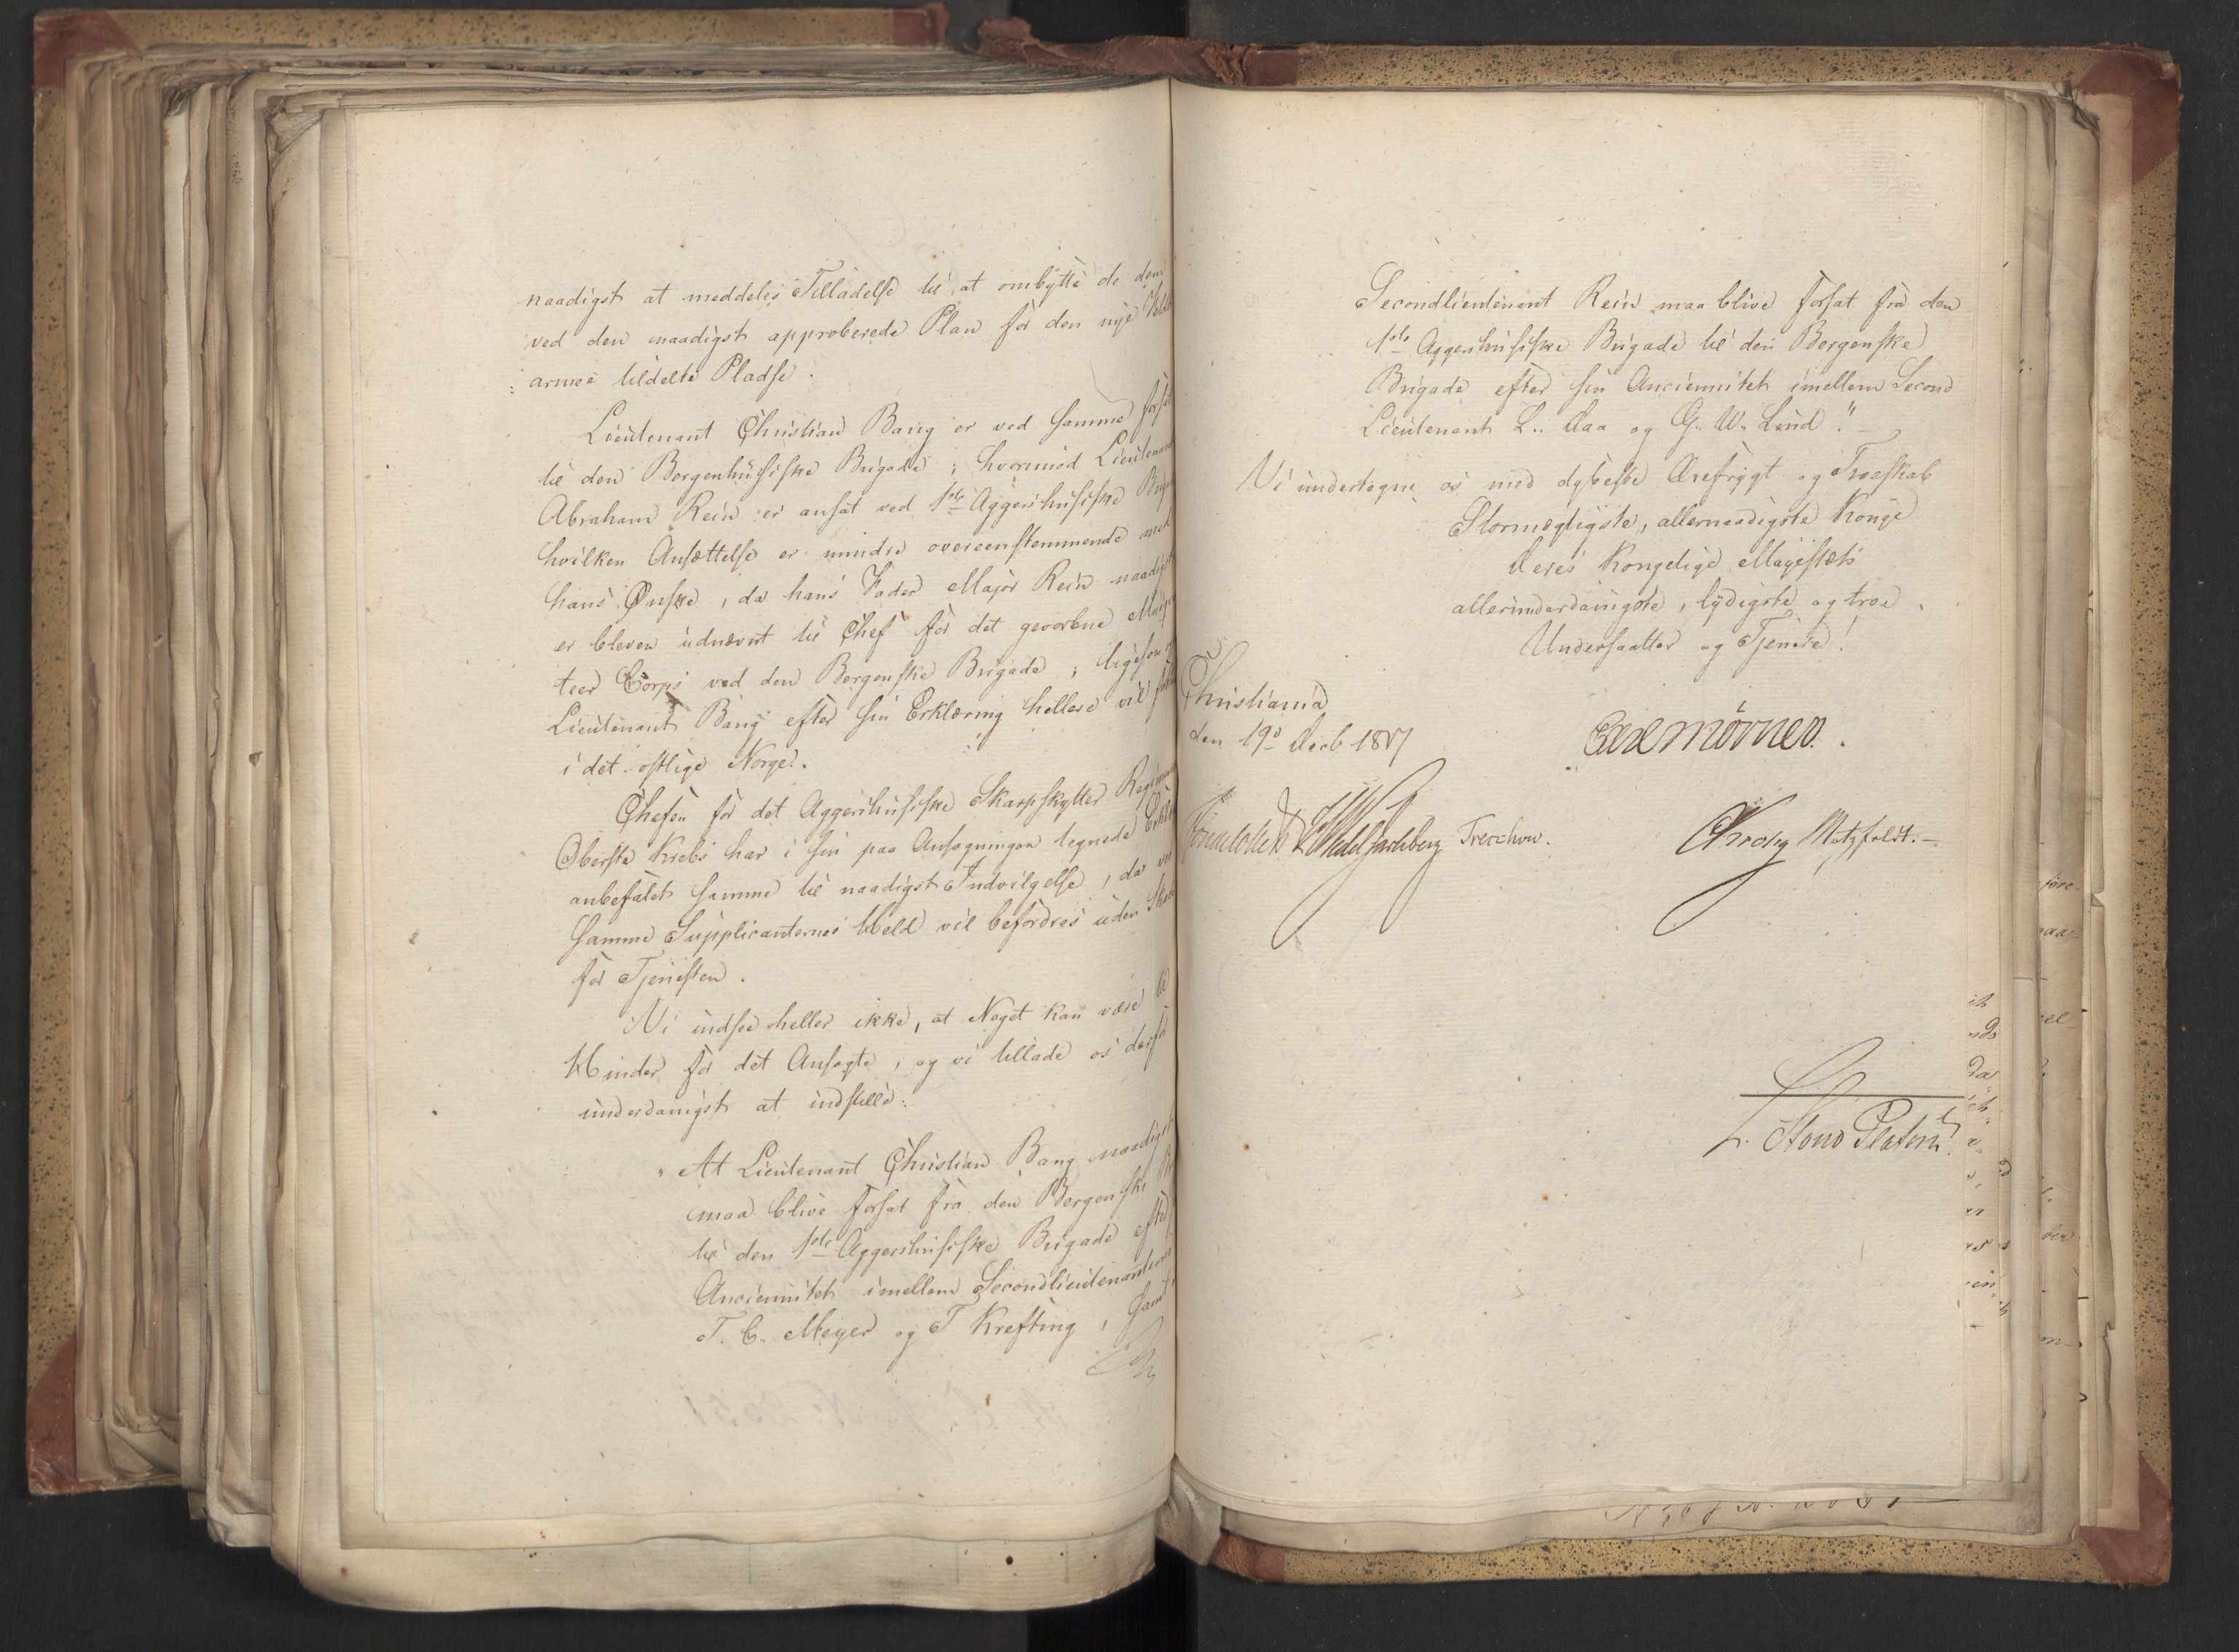 naadigst at meddeles Tilladelse til at ombytte de dem
ved den naadigst approberede Plan for den nye
armee tildelte Pladse.
Lieutenant Christian Bang er ved samme forsat
til den Bergenhusiske Brigade; hvorimod Lieutenant
Abraham Rein er ansat ved 1ste Aggershusiske
hvilken Ansættelse er mindre overeenstemmende med
hans Ønske, da hans Fader Major Rein naadigst
er bleven udnævnt til Chef for det gevorbne
teer Corps ved den Bergenske Brigade; ligesom
Lieutenant Bang efter sin Erklæring hellere vil
i det østlige Norge.
Chefen for det Aggershusiske Skarpskytter
Oberste Krebs har i sin paa Ansøgningen tegnede
anbefalet samme til naadigst Indvilgelse, da ved
samme Supplicanternes Held vil befordres uden
for Tjenesten.
Vi indsee heller ikke, at Noget kan være til
Hinder for det Ansøgte, og vi tillade os derfor
underdanigst at indstille:
"At Lieutenant Christian Bang naadigst
maa blive forsat fra den Bergenske
til den 1ste Aggershusiske Brigade efter
Anciennitet imellem Secondlieutenanterne
T. C. Meyer og T Krefting, samt
Secondlieutenant Rein maa blive forsat fra den
1ste Aggershusiske Brigade til den Bergenske
Brigade efter sin Anciennitet imellem Second
Lieutenant L. Daa og G. W. Lund."
Vi undertegne os med dybeste Ærefrygt og Troeskab
Stormægtigste, allernaadigste Konge
Deres Kongelige Majestæts
allerunderdanigste, lydigste og troe
Undersaatter og Tjenere!
Christiania
den 19de Decb 1817
Carl Mörner.
Sommerhielm Wedel Jarlsberg Treschow.
Krogh Motzfeldt.
L. Stoud Platou